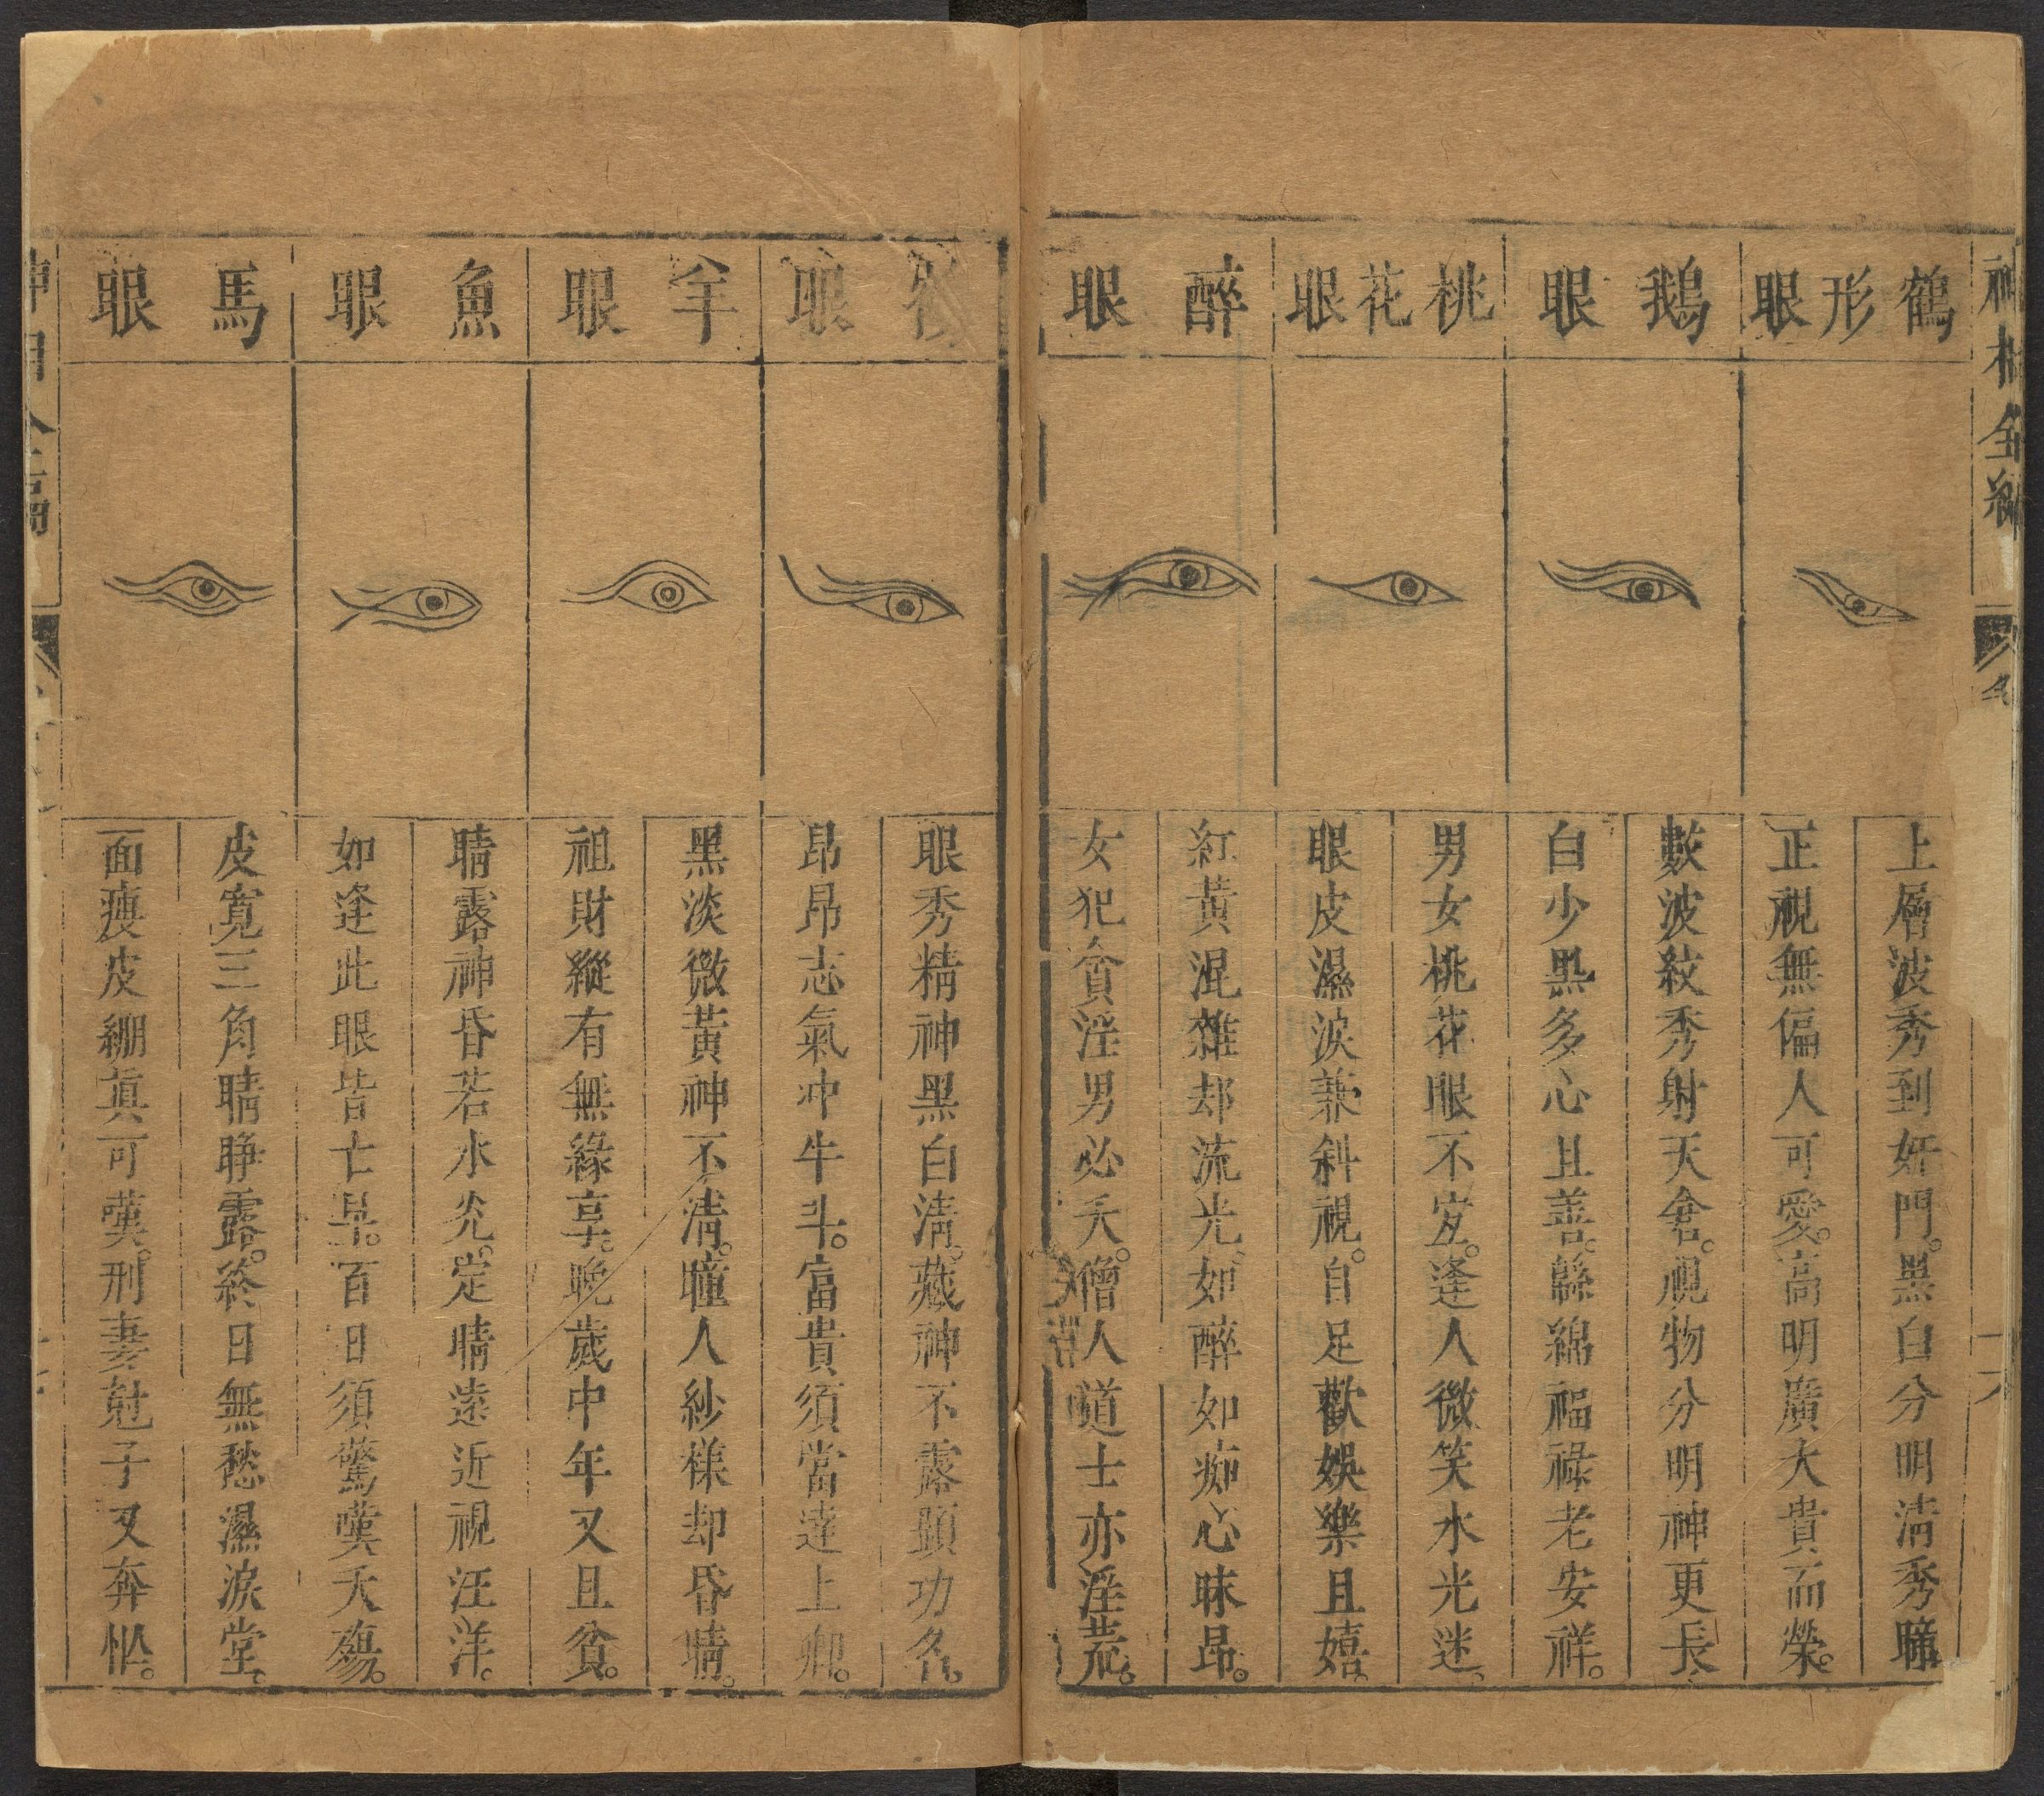 神相全編
鶴形眼
上層波秀到奸門。黑白分明清秀瞳
正視無偏人可愛。高明廣大貴而榮。
鵝眼
數波紋秀射天倉。視物分明神更長、
白少黑多心且善。緜綿福祿老安祥。
桃花眼
男女桃花眼不宐。逢人微笑水光迷、
眼皮濕淚兼斜視。自足歡娛樂且嬉、
醉眼
紅黃混雜却流光、如醉如痴心昧昂。
女犯貪淫男必夭。僧人道士亦淫荒。
眼
眼秀精神黑白清。藏神不露顯功名。
昂昂志氣冲牛斗。富貴須當達上卿。
羊眼
黑淡微黃神不清。瞳人紗樣却昏睛。
祖財縱有無緣享。晚歲中年又且貧。
魚眼
睛露神昏若水光。定睛遠近視汪洋。
如逢此眼皆亡早。百日須驚嘆夭殤。
馬眼
皮寬三角睛睜露。終日無愁濕淚堂、
面瘦皮綳眞可嘆。刑妻尅子又奔忙。